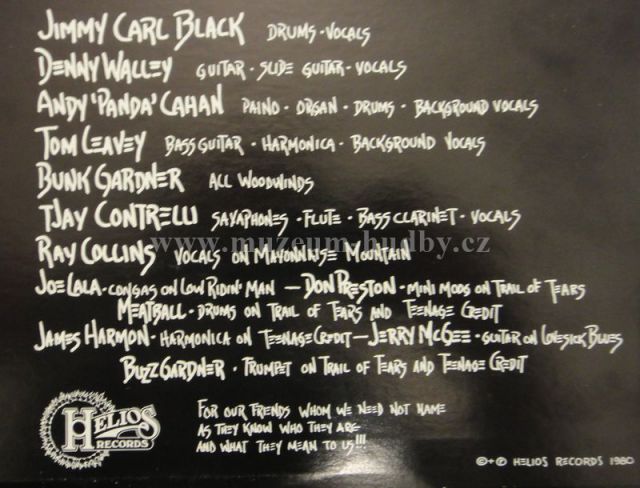 JIMMY CARL BLACK DRUMS - VOCALS
DENNY WALLEY GUITAR - SLIDE GUITAR - VOCALS
ANDY 'PANDA' CAHAN PAINO - ORGAN - DRUMS - BACKGROUND VOCALS
TOM LEAVEY BASS GUITAR - HARMONICA - BACKGROUND VOCALS
BUNK GARDNER ALL WOODWINDS
TJAY CONTRELLI SAXAPHONES - FLUTE - BASS CLARINET - VOCALS
RAY COLLINS VOCALS ON MAYONNAISE MOUNTAIN
www.muzeum-hudby.cz
JOE LALA - CONGAS ON LOW RIDIN' MAN — DON PRESTON - MINI MOOG ON TRAIL OF TEARS
MEATBALL - DRUMS ON TRAIL OF TEARS AND TEENAGE CREDIT
JAMES HARMON - HARMONICA ON TEENAGE CREDIT — JERRY MCGEE - GUITAR ON LOVESICK BLUES
BUZZ GARDNER - TRUMPET ON TRAIL OF TEARS AND TEENAGE CREDIT
HELIOS
RECORDS
FOR OUR FRIENDS WHOM WE NEED NOT NAME
AS THEY KNOW WHO THEY ARE
AND WHAT THEY MEAN TO US!!!
©+℗ HELIOS RECORDS 1980